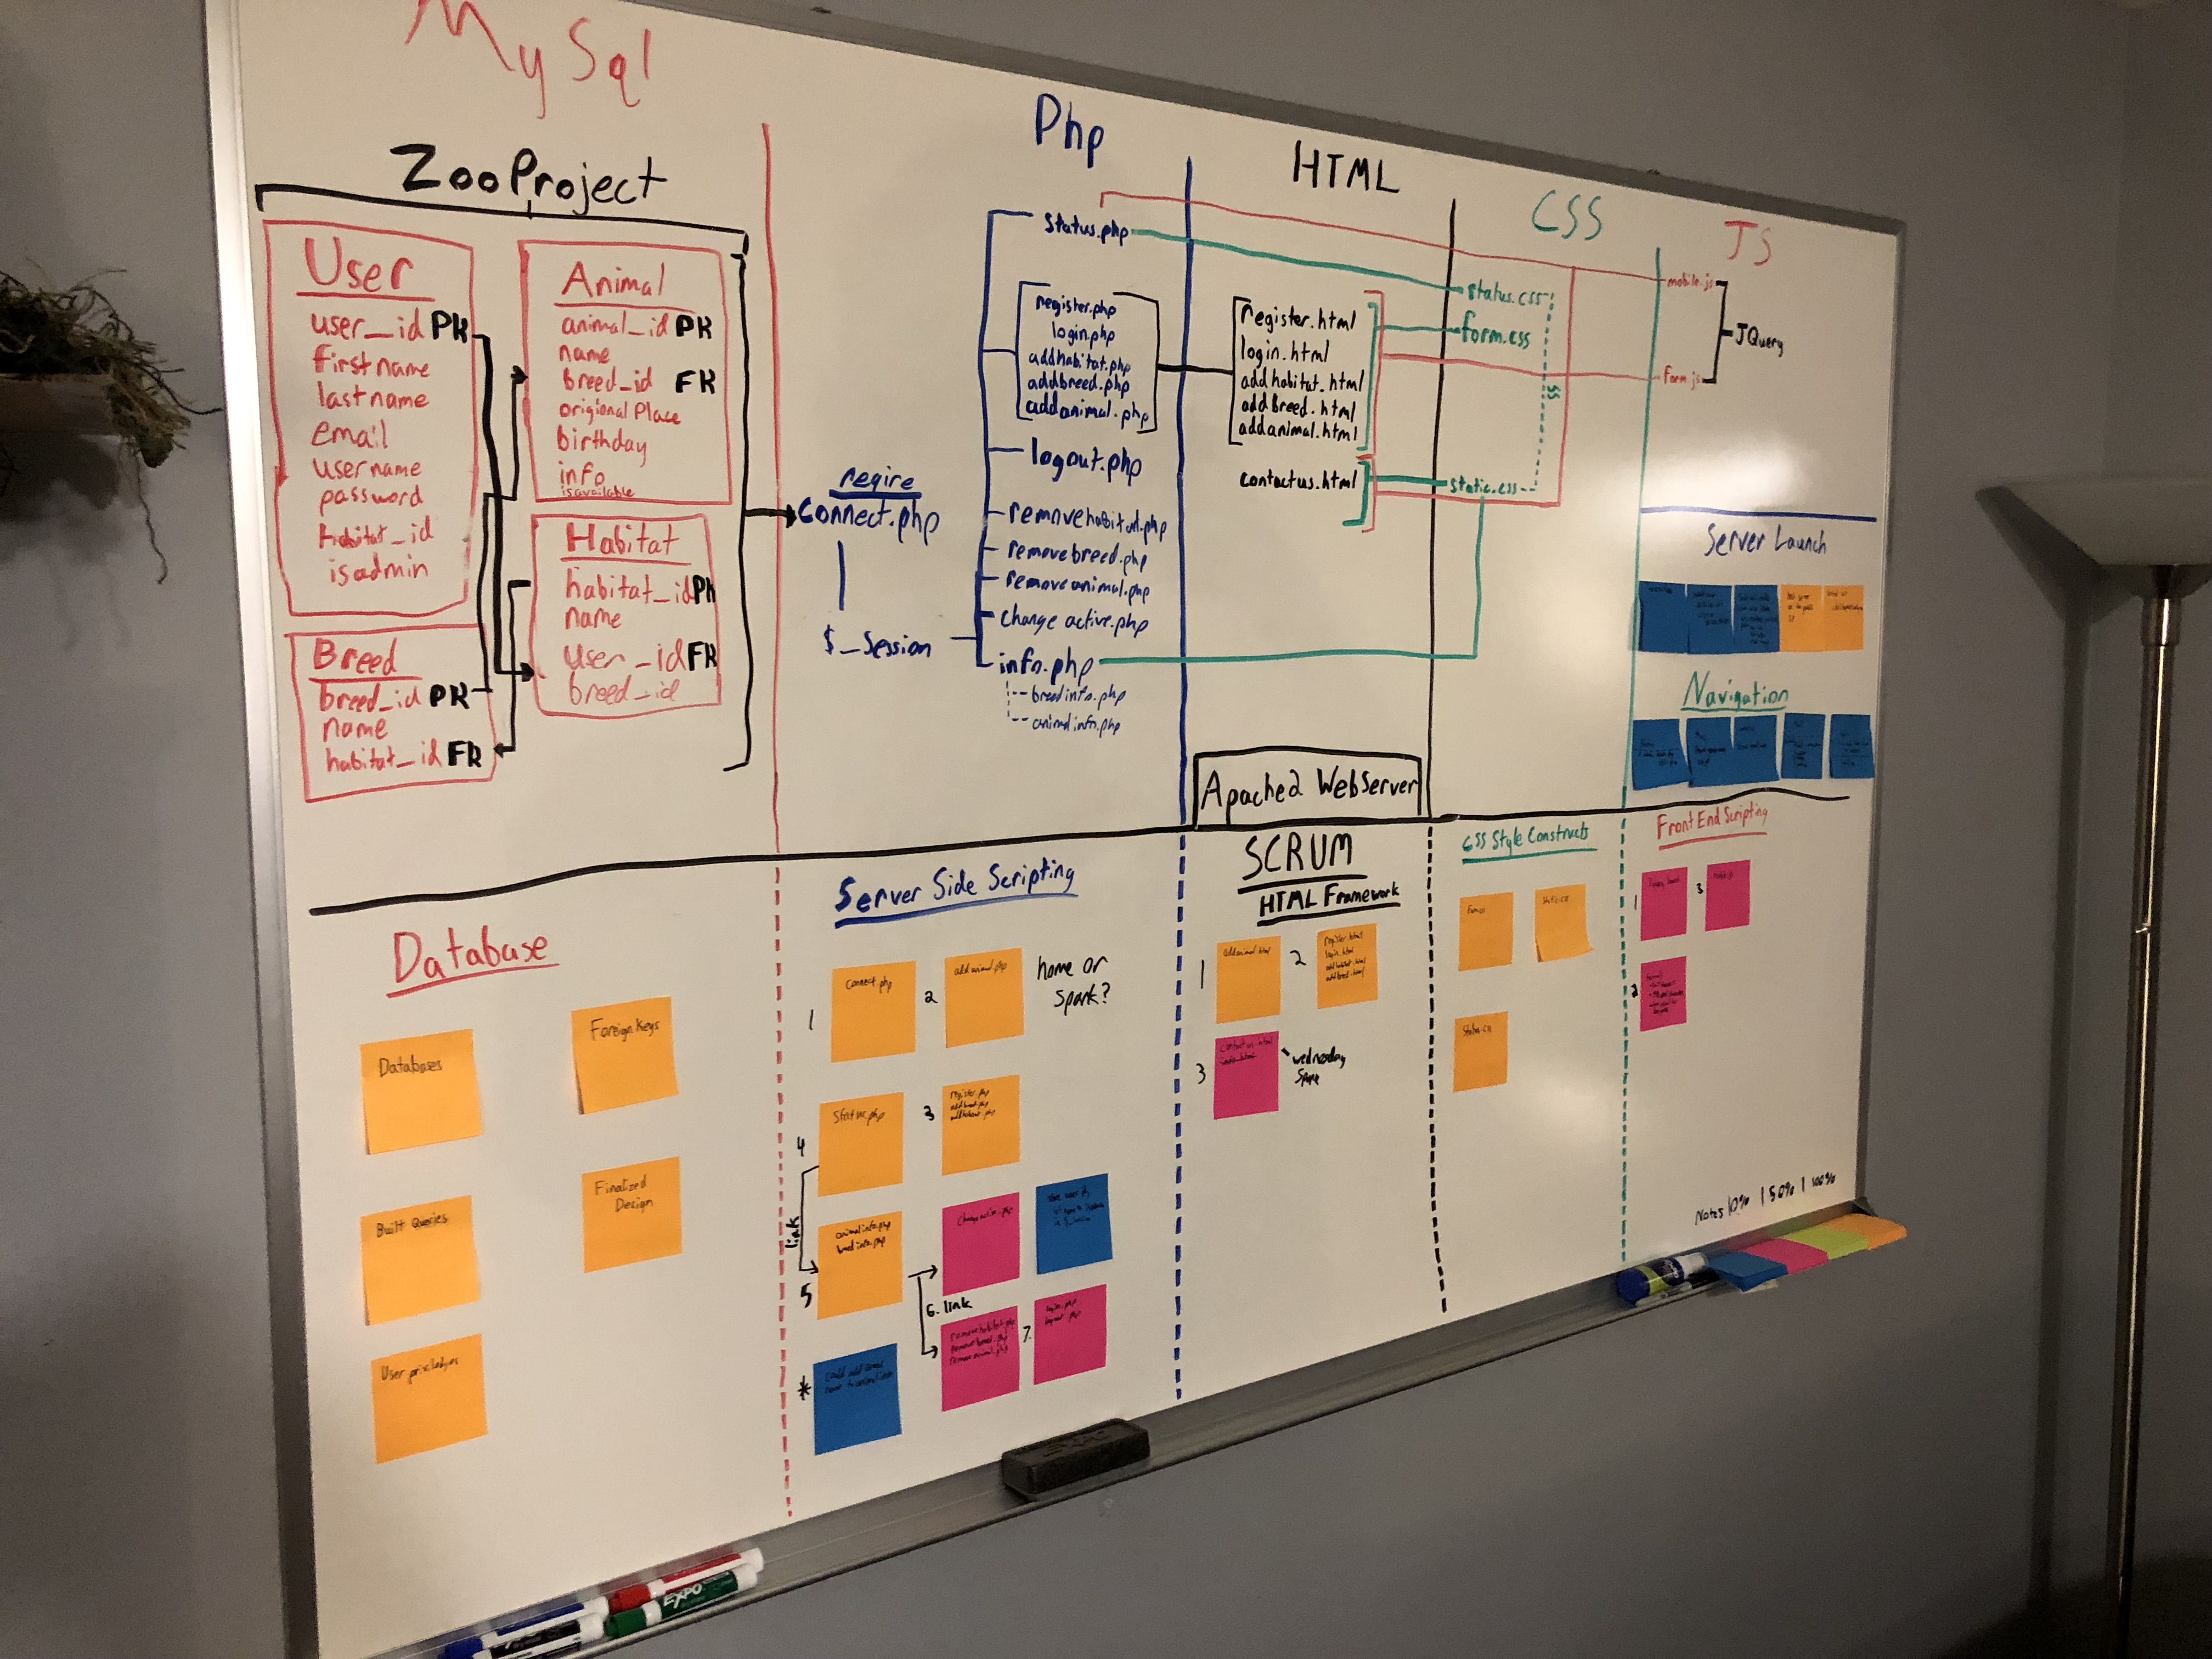 MySql
ZooProject
User
user_id PK
firstname
lastname
email
username
password
habitat_id
isadmin
Animal
animal_id PK
name
breed_id FK
origional Place
birthday
info
isavailable
Breed
breed_id PK
name
habitat_id FK
Habitat
habitat_id PK
name
user_id FK
breed_id
Php
reqire
connect.php
$_Session
status.php
register.php
login.php
addhabitat.php
addbreed.php
addanimal.php
logout.php
removehabitat.php
removebreed.php
removeanimal.php
change active.php
info.php
breedinfo.php
animalinfo.php
HTML
register.html
login.html
addhabitat.html
addbreed.html
addanimal.html
contactus.html
Apache2 WebServer
CSS
status.css
form.css
static.css
JS
mobile.js
form.js
JQuery
Server Launch
Navigation
Database
Databases
Foreign Keys
Built Queries
Finalized
Design
Server Side Scripting
1
connect.php
2
addanimal.php
home or
spark?
4
status.php
3
register.php
link
5
animalinfo.php
breedinfo.php
6. link
removehabitat.php
removebreed.php
removeanimal.php
7.
login.php
logout.php
*
SCRUM
HTML Framework
1
addanimal.html
2
register.html
login.html
addhabitat.html
addbreed.html
3
contactus.html
wednesday
CSS Style Constructs
form.css
static.css
status.css
Front End Scripting
1
3
mobile.js
2
Notes 0% | 50% | 100%
EXPO